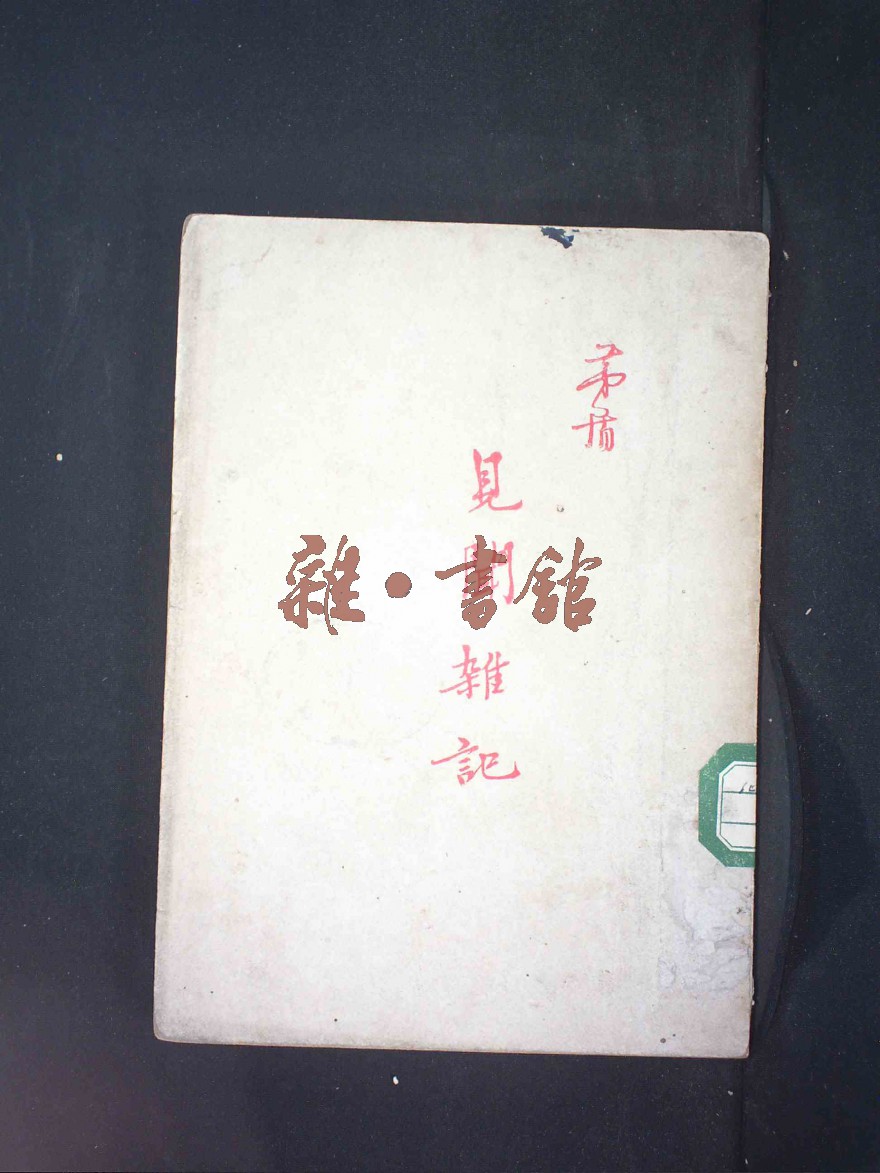 茅盾
見聞雜記
雜·書館